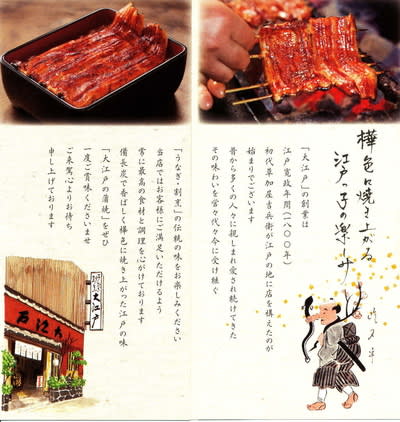 樺色に焼き上がる
江戸っ子の楽しみ
「大江戸」の創業は
江戸寛政年間(一八〇〇年)
初代草加屋吉兵衛が江戸の地に店を構えたのが
始まりでございます
昔から多くの人々に親しまれ愛され続けてきた
その味わいを営々代々今に受け継ぐ
「うなぎ・割烹」の伝統の味をお楽しみください
当店ではお客様にご満足いただけるよう
常に最高の食材と調理を心がけております
備長炭で香ばしく樺色に焼き上がった江戸の味
「大江戸の蒲焼」をぜひ
一度ご賞味くださいませ
ご来駕心よりお待ち
申し上げております
大江戸
戸江大